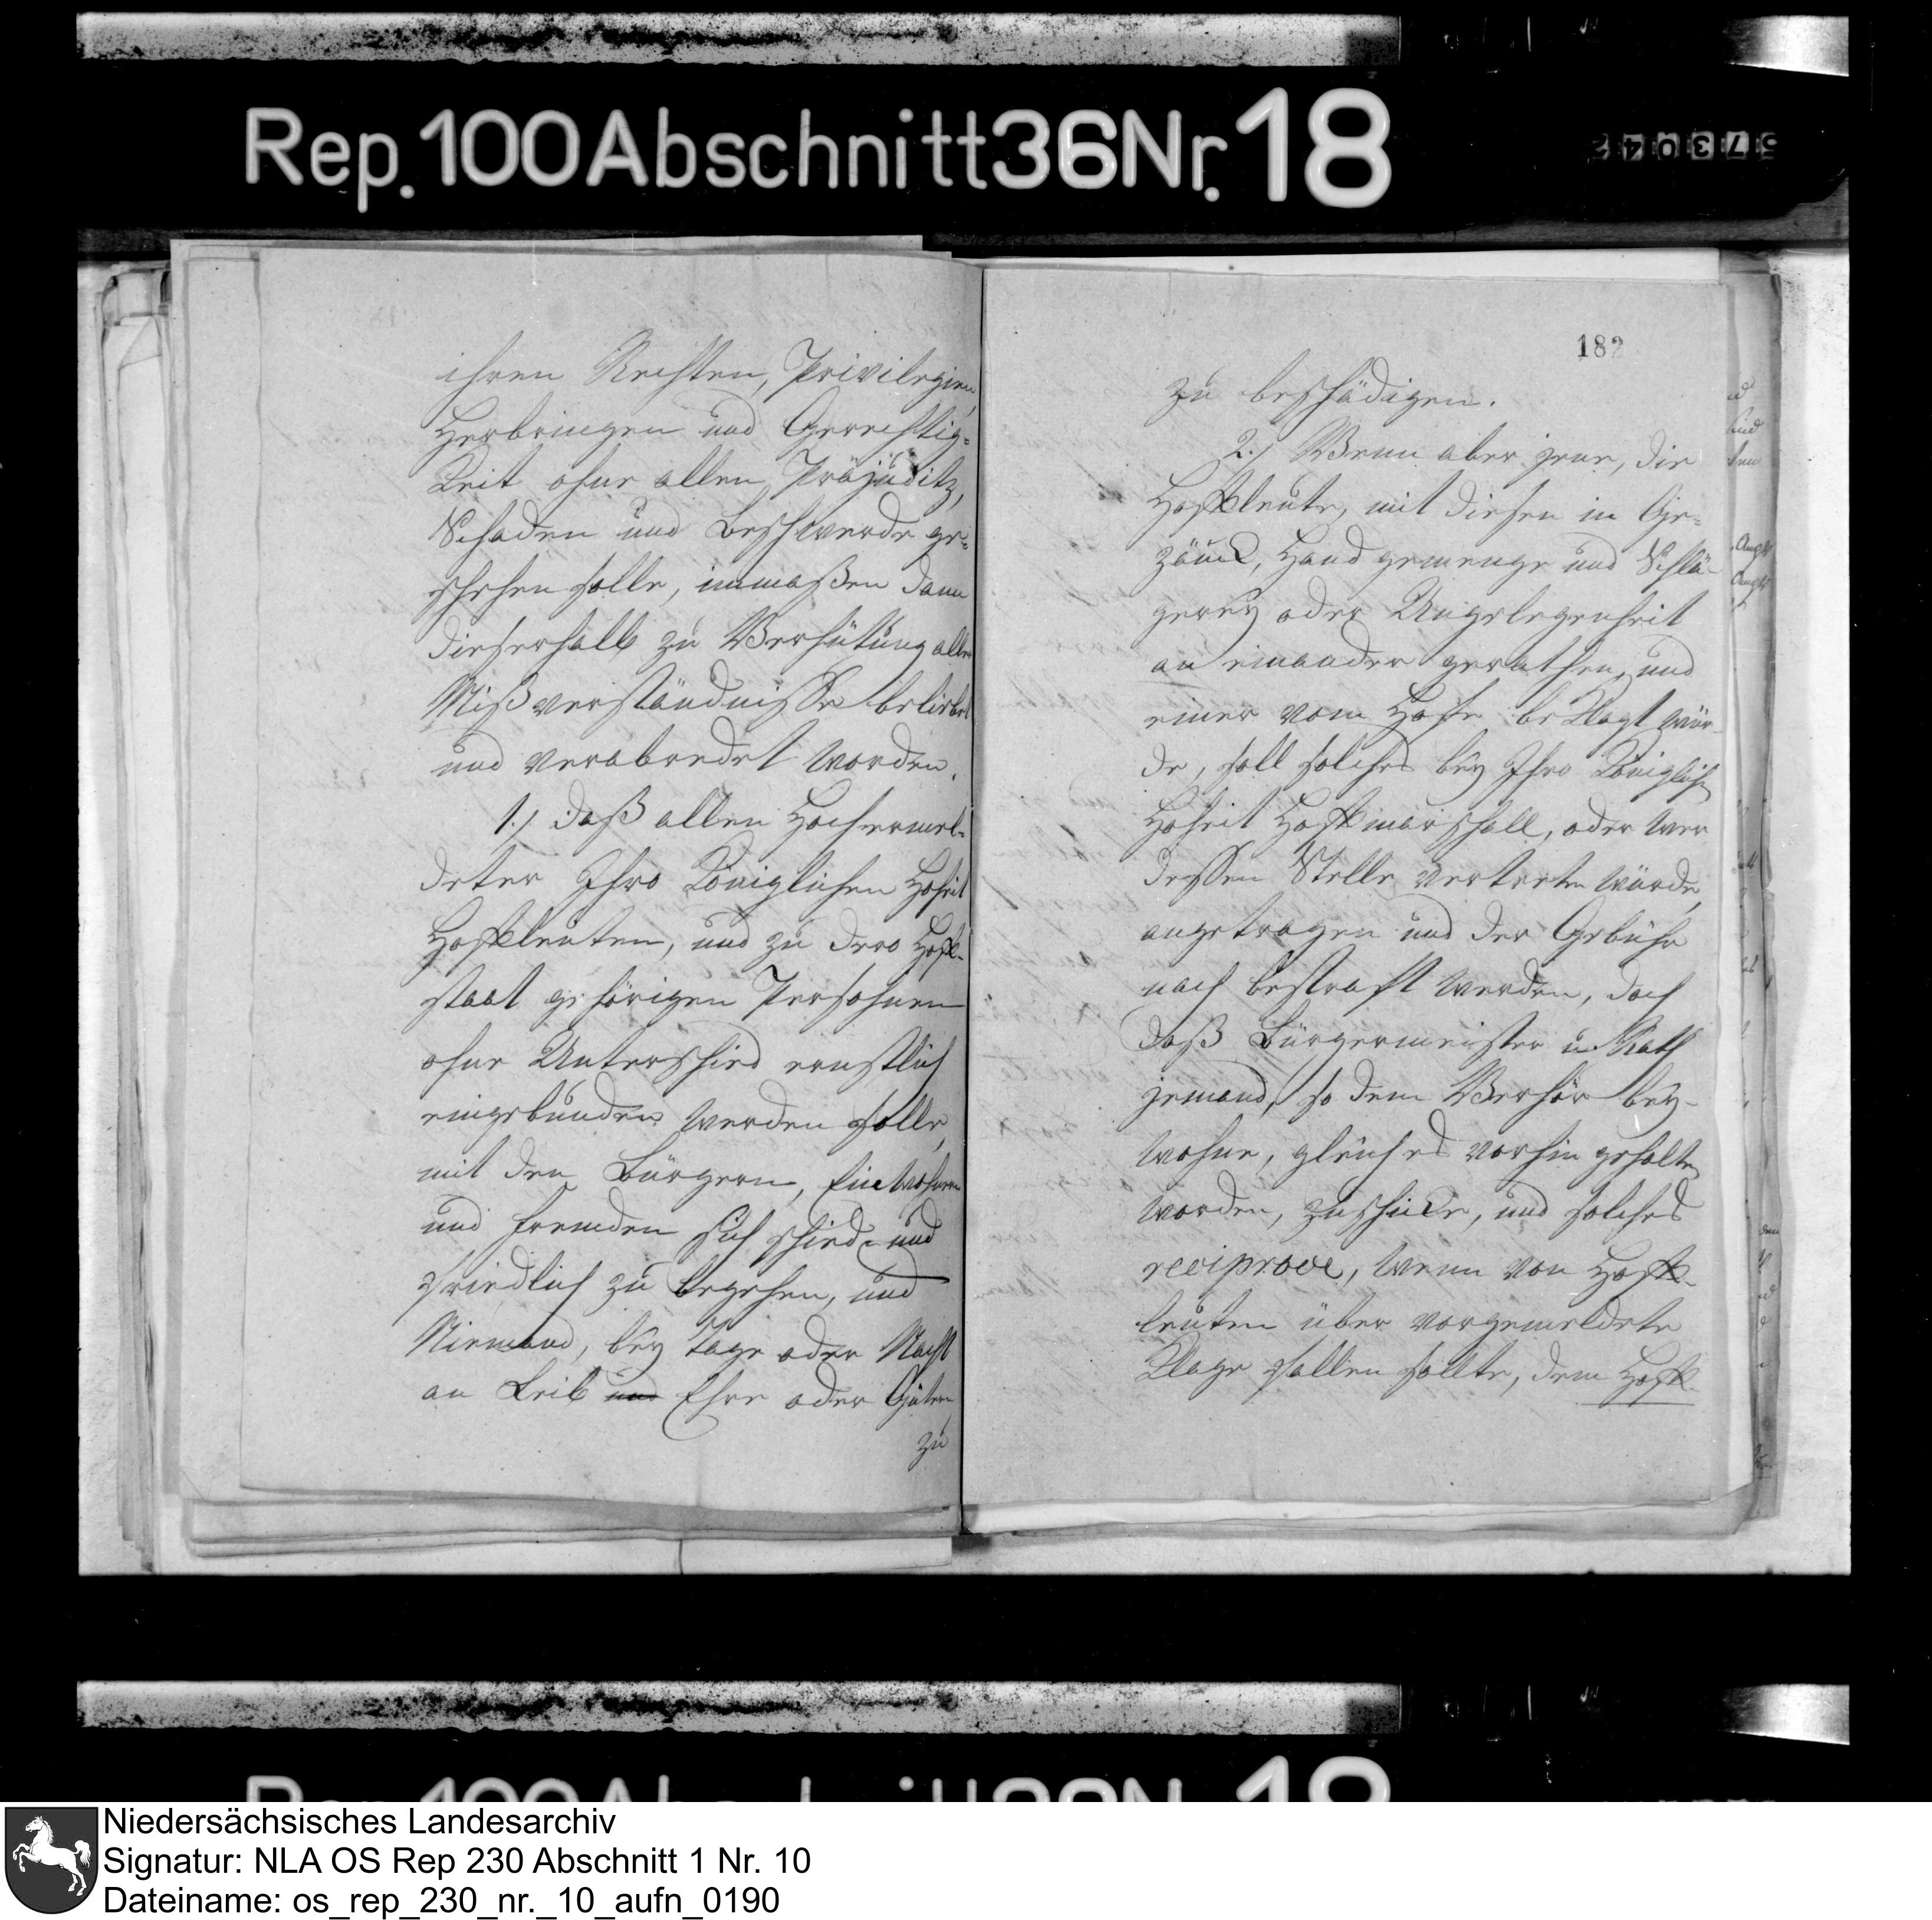 Rep. 100 Abschnitt 36 Nr. 18
ihren Rechten, Privilegien,
Herbringen und Gerechtig-
keit ohne allen Präjuditz,
Schaden und Beschwerde ge-
schehen solle, inmaßen dann
dieserhalb zu Verhütung aller
Mißverständnisse beliebet
und verabredet worden.
1.) daß allen Hochermel-
deter Ihro Königlichen Hoheit
Hoffleuten, und zu dero Hoff-
staat gehörigen Persohnen
ohne Unterschied ernstlich
eingebunden werden solle,
mit den Bürgern, Einwohnern
und Fremden sich schied- und
friedlich zu begehen, und
Niemand, bey Tage oder Nacht
an Leib und Ehre oder Gütern
zu
182
zu beschädigen.
2.) Wenn aber jene, die
Hoffleute, mit diesen in Ge-
zänck, Handgemenge und Schlä-
gerey oder Ungelegenheit
an einander gerathen, und
einer vom Hofe beklagt wür-
de, soll solches bey Ihro Königlich
Hoheit Hoffmarschall, oder wer
dessen Stelle vertreten würde,
angetragen und der Gebühr
nach bestraft werden, doch
daß Bürgermeister u. Rath
jemand, so dem Verhör bey-
wohne, gleich es vorhin gehalten
worden, zuschicke, und solches
reciproce, wenn von Hoff-
leuten über vorgemeldete
Klage fallen sollte, dem Hoff-
Niedersächsisches Landesarchiv
Signatur: NLA OS Rep 230 Abschnitt 1 Nr. 10
Dateiname: os_rep_230_nr._10_aufn_0190